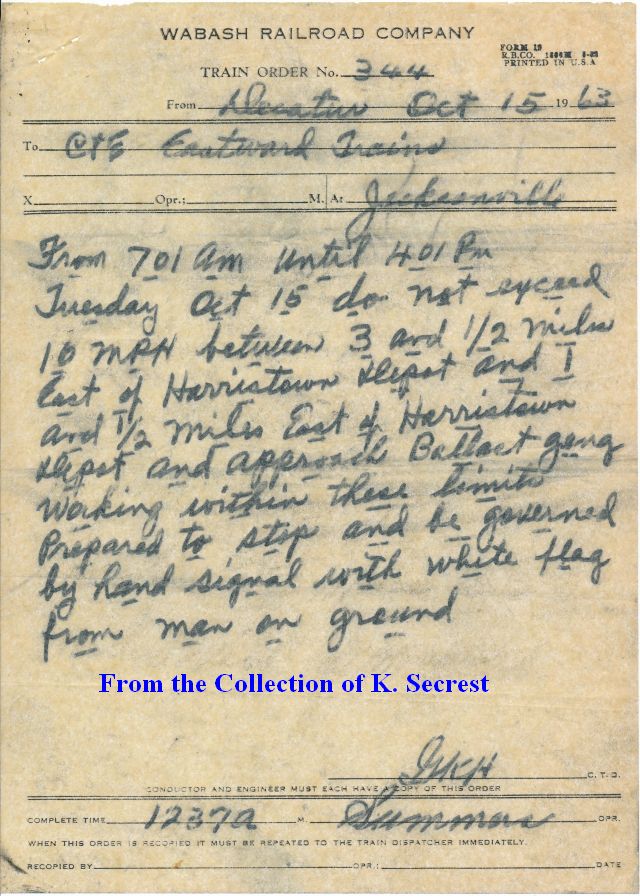 WABASH RAILROAD COMPANY
FORM 19
R.B.CO. 1500M 5-52
PRINTED IN U.S.A
TRAIN ORDER No. 344
From Decatur Oct 15 1963
To C&E Eastward Trains
X Opr.; M. At Jacksonville
From 701 Am Until 401 Pm
Tuesday Oct 15 do not exceed
10 MPH between 3 and 1/2 Miles
East of Harristown Depot and 1
and 1/2 Miles East of Harristown
Depot and approach Ballast gang
Working within these limits
Prepared to stop and be governed
by hand signal with white flag
from man on ground
From the Collection of K. Secrest
GKH C.T.D.
CONDUCTOR AND ENGINEER MUST EACH HAVE A COPY OF THIS ORDER
COMPLETE TIME 1237a M. Summers OPR.
WHEN THIS ORDER IS RECOPIED IT MUST BE REPEATED TO THE TRAIN DISPATCHER IMMEDIATELY.
RECOPIED BY OPR.: DATE